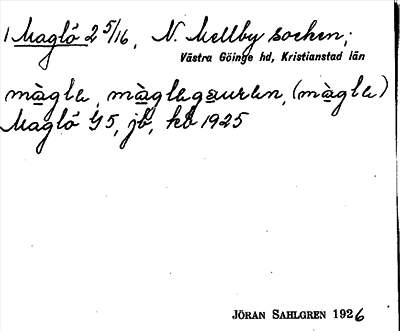 1 Maglö 2 5/16, N. Mellby socken;
Västra Göinge hd, Kristianstad län
màgla, màglagauran, (màgla)
Maglö G5, jb, kb 1925
JÖRAN SAHLGREN 1926